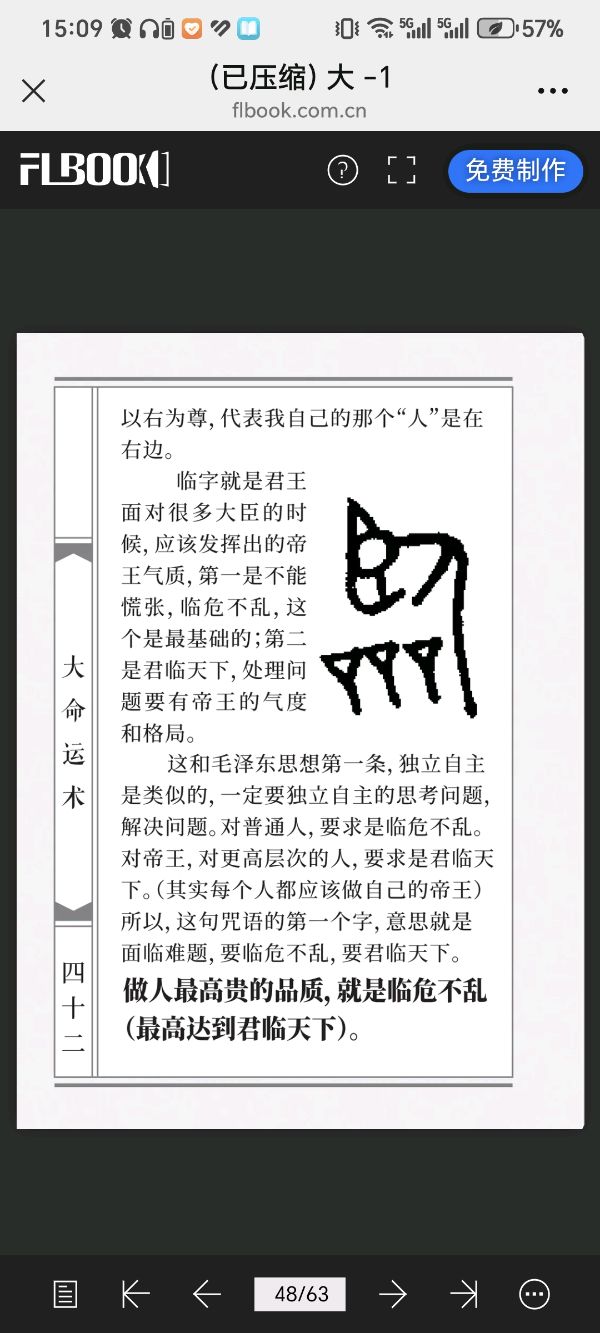 15:09
5G
5G
57%
(已压缩) 大 -1
flbook.com.cn
FLBOOK
?
免费制作
以右为尊,代表我自己的那个“人”是在
右边。
临字就是君王
面对很多大臣的时
候,应该发挥出的帝
王气质,第一是不能
慌张,临危不乱,这
个是最基础的;第二
是君临天下,处理问
题要有帝王的气度
和格局。
这和毛泽东思想第一条,独立自主
是类似的,一定要独立自主的思考问题,
解决问题。对普通人,要求是临危不乱。
对帝王,对更高层次的人,要求是君临天
下。(其实每个人都应该做自己的帝王)
所以,这句咒语的第一个字,意思就是
面临难题,要临危不乱,要君临天下。
做人最高贵的品质,就是临危不乱
(最高达到君临天下)。
大命运术
四十二
48/63